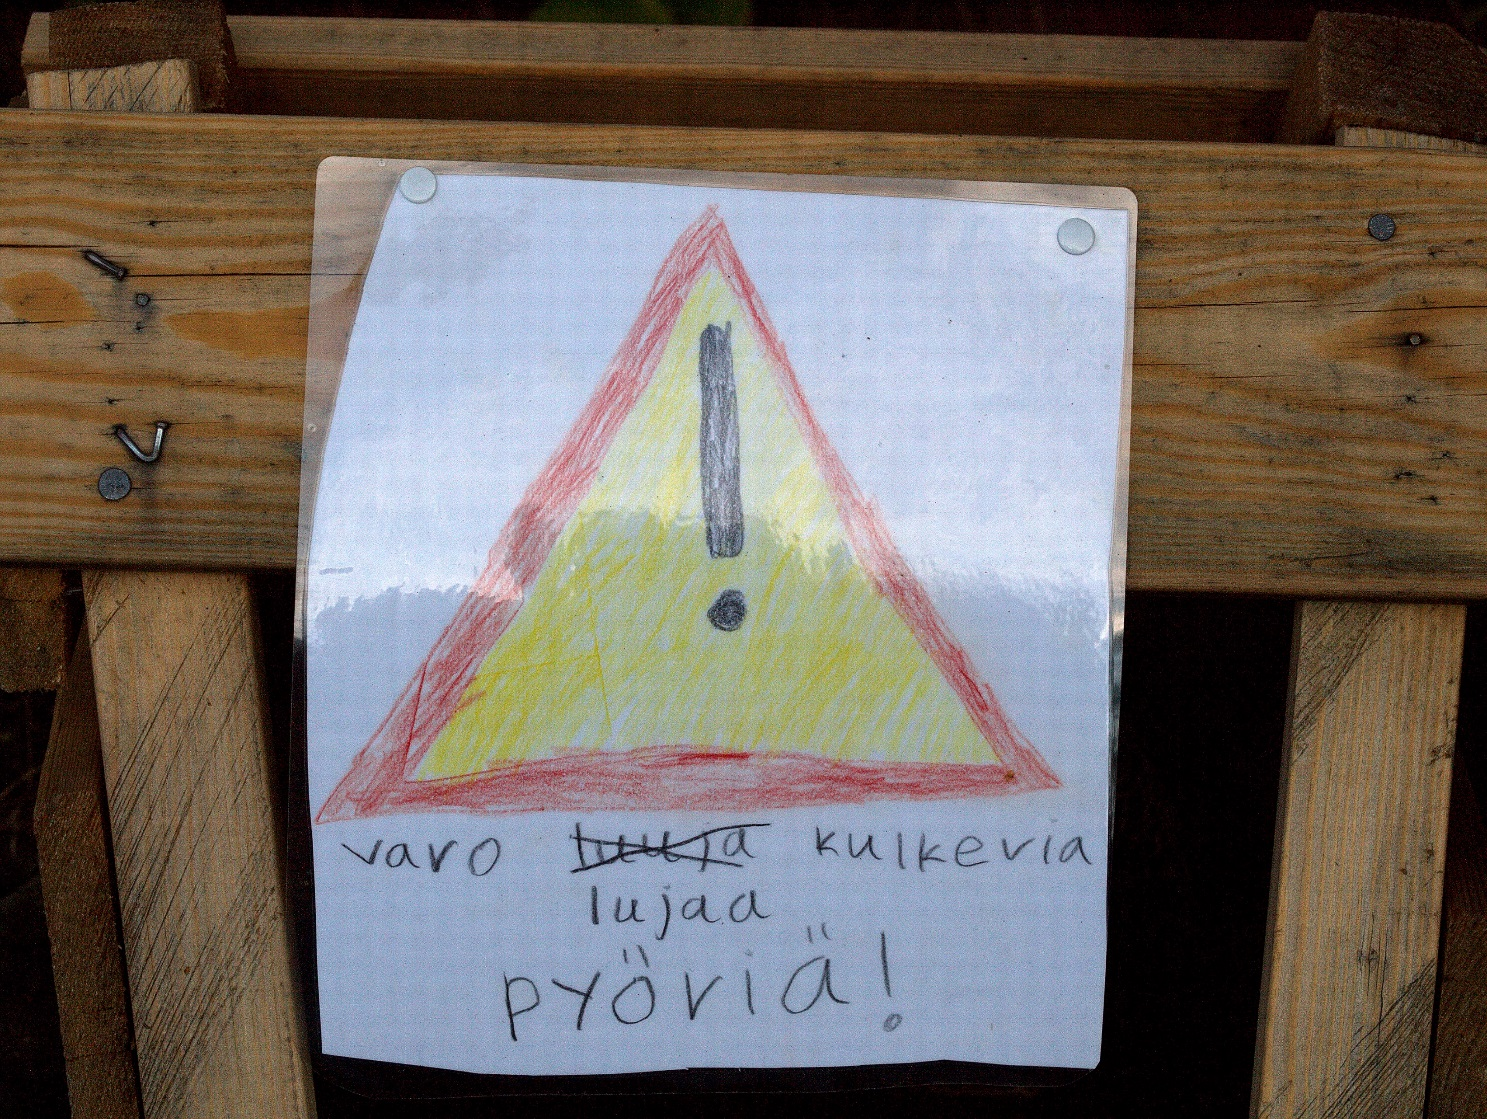 varo kulkevia
lujaa
pyöriä!